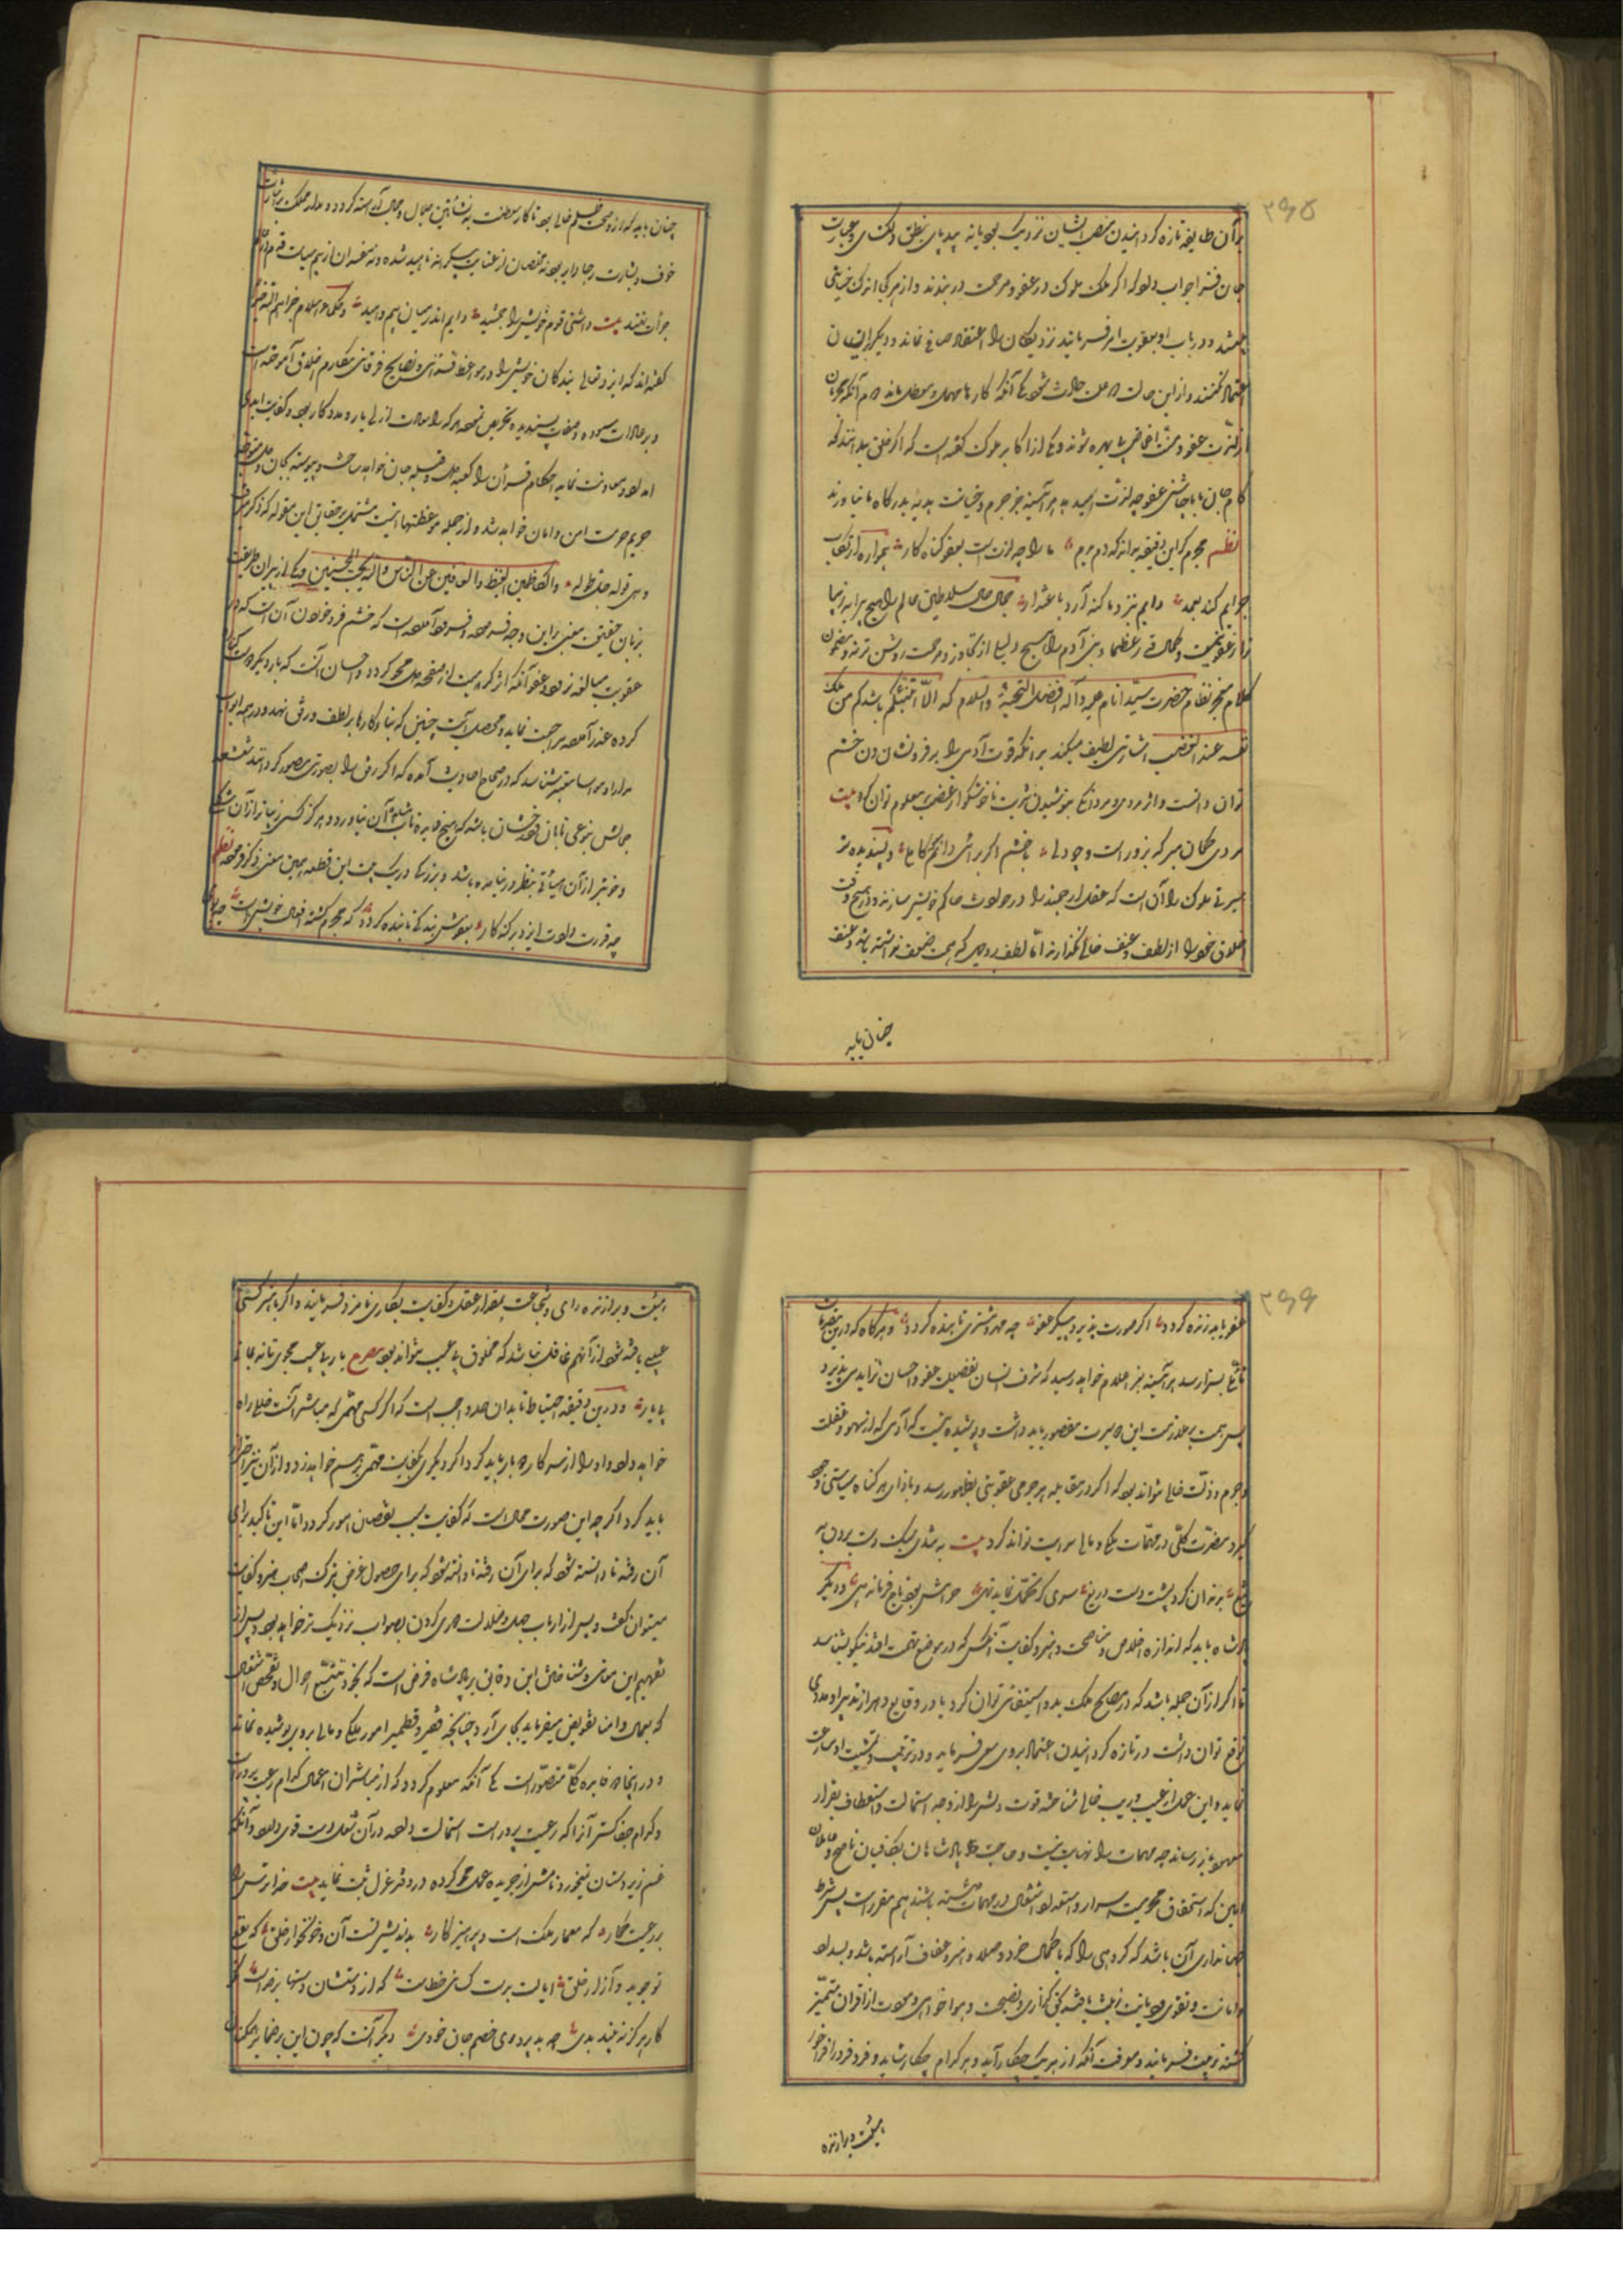 ۲۶۵
بر آن طایفه تازه گردانیدن منصب ایشان نزدیک بود یا نه بیدپای بنطق دلگشای و عبارت
جان فزا جواب داد که اگر ملک ملوک در عفو و مرحمت در بندند و از هرکه اندک خیانتی
در باب او بعقوبت امر فرمایند نزدیکان را اعتقاد صافی نماند و دیگر بر ایشان
اعتماد نکنند و از این حالت دو علت حادث شود یکی آنکه کارها مهمل و معطل ماند دوم آنکه مجرمان
از لذت عفو و منت اغماض بی بهره شوند و یکی از اکابر ملوک گفته است که اگر خلق بدانند که
کام جان ما با چاشنی عفو چه لذت میابد هر آینه جز جرم و خیانت هدیه بدرگاه ما نیاورند
نظم مجرم گر این دقیقه بداند که دم بدم ما را چه لذتست بعفو گناه کار همواره ارتکاب
جرایم کند بعمد دایم بنزد ما گنه آرد باعتذار جمال حال سلاطین عالم را هیچ پیرایه زیبا
تر از عفو نیست و کمال قدر عظماء بنی آدم را هیچ دلیل از تجاوز و مرحمت روشن تر نه و مضمون
کلام معجز نظام حضرت سید انام علیه و آله افضل التحیة والسلام که الا انبئکم باشدکم من ملک
نفسه عند الغضب اشارتی لطیف میکند بر آنکه قوت آدمی را بر فرو نشاندن خشم
توان دانست و اثر مردی و مردانگی بنوشیدن شربت ناخوشگوار غضب معلوم توان کرد بیت
مردی گمان مبر که بزور است و پر دلی با خشم اگر برآئی دانم که کاملی و پسندیده تر
سیرتی ملوک را آن است که عقل ارجمند را در حوادث حاکم خویش سازند و در هیچ وقت
اخلاق خود را از لطف و عنف خالی نگذارند اما لطف بروجهی که سمت ضعف نداشته باشد و عنف
چنان باید
چنان باید که از وصمت ظلم خالی بود تا کار سلطنت به نشأتین جلال و جمال آراسته گردد و مدار مملکت بر اشارت
خوف و بشارت رجا دایر بود نه مخلصان از عنایت بیکرانه ناامید شوند و نه مفسدان از بیم سیاست قدم در دایره
جرأت نهند بیت داشتی قوم خویش را جمشید دایم اندر میان بیم و امید و حکماء اسلام جزاهم الله خیراً
گفته اند که ایزد تعالی بندگان خویش را در مواعظ قرآنی و نصایح فرقانی مکارم اخلاق آموخته است
و بر عادات ستوده و صفات پسندیده تحریص نموده هر که را سعادت ازلی یار و مددکار بود و کفایت ابدی
امداد و معاونت نماید احکام قرآن را کعبه دل و قبله جان خواهد ساخت و پیوسته بجان و دل متوجه
حریم حرمت امن و امان خواهد شد و از جمله موعظتها آیتست مشتمل بر حقایق این مقوله که ذکر رفت
وهی قوله جل طوله والکاظمین الغیظ والعافین عن الناس والله یحب المحسنین و یکی از پیران طریقت
بزبان حقیقت معنی بر این وجه فرموده و فرمود آمده است که خشم فرو خوردن آن است که در
عقوبت مبالغه نرود و عفو آنکه اثر کراهیت از صفحه دل محو گردد و احسان آنست که بار دیگر
کرده عذر آمده مراجعت نماید و محصل آیت چنین که بناء کارها بر لطف و رفق نهد و در همه ابواب
مدارا و مواسا معتبر شناسد که در صحاح احادیث آمده که اگر رفق را بصورتی مصور گردانند تشعشعه
جمالش بنوعی تابان و درخشان باشد که هیچ دیده تاب مشاهده آن نیاورد و هرگز کسی زیباتر از آن شکلی
و خوبتر از آن هیأتی بنظر در نیامده باشد و بزرگی در یک بیت این قطعه همین معنی ذکر فرموده نظم
چه قدرت دادت ایزد بر گنه کار بعفوش بنده کن تا بنده گردد که مجرم کشته افعال خویش است چو بوی
۲۶۶
عفو یابد زنده گردد اگر صورت پذیرد پیکر عفو چه مهر و مشتری تابنده گردد و هرگاه که در این مقدمات
تأملی بسزا رسد هر آینه بنور اعلام خواهد رسید که شرف انسان بفضیلت عفو و احسان تزاید می پذیرد
پس همت بر ملازمت این سیرت مقصور باید داشت و پوشیده نیست که آدمی از سهو و غفلت
و جرم و ذلت خالی نتواند بود که اگر در مقابله هر جرمی عقوبتی بظهور رسد و بازای هر گناه سیاستی وجود
گیرد مضرت کلی در مهمات ملکی و مالی سرایت تواند کرد بیت به تندی سبک دست بردن به
تیغ بدندان گزد پشت دست دریغ سری که تحمل نماید تهی حرامش بود تاج فرماندهی و دیگر
پادشاه باید که اندازه اخلاص و مناصحت و هنر و کفایت آنکس که در موضع تهمت افتد نیکو بشناسد
تا اگر از آن جمله باشد که در مصالح ملک بدو استعانتی توان کرد یا در وقایع دهر از تدبیر او مددی
توقع توان داشت در تازه گردانیدن اعتماد بر وی سعی فرماید و در تربیت و تمشیت او مسارعت
نماید و این عمل از عیب و ریب خالی شناخته قوت دلش را از وجه استمالت و استعطاف بقرار
معهود باز رساند چه مهمات را نهایت نیست و حاجت پادشاهان بکافیان ناصح و عاملان
امین که استحقاق محرمیت اسرار و استعداد اشتغال در مهمات داشته باشند هم مقرر است پس شرط
جهانداری آن باشد که گروهی را که بکمال خرد و صلاح و هنر و عفاف آراسته باشد و بسداد
و امانت و تقوی و دیانت زینت یافته بحق گزاری و نصیحت و هواخواهی و مودت از اقران متمیز
گشته تربیت فرمایند و معرفت آنکه از هر یک چه کار آید و هر کدام چه کار شاید و فرد فرد را فراخور
هیئت و براندازه
هیئت و براندازه رای و شجاعت بمقدار عقل و کفایت بکاری نامزد فرمایند و اگر با هنر کسی
عیبی یافته شود از آن هم غافل نباشد که مخلوق بی عیب نتواند بود مصرع یار بی عیب مجوی تا نمانی
بی یار و درین دقیقه احتیاط تا بدان حد واجب است که اگر کسی مهمی که مباشر آنست خللی راه
خواهد داد او را از سر کار دور باید کرد و اگر دیگری بکفایت مهمی برسم خواهد زد و از آن نیز احتراز
باید کرد اگر چه این صورت محال است که کفایت سبب نقصان امور گردد اما این تأکید برای
آن رفته تا دانسته شود که برای آن رفته تا دانسته شود که برای حصول غرض ترک اصحاب هنر و کفایت
میتوان گفت و پس از ارباب جهل و ضلالت دوری کردن بصواب نزدیک تر خواهد بود و پس از
تفهیم این معانی و شناختن این دقایق بر پادشاه فرض است که بخود تتبع احوال و تفحص اشغال
که بعمال و امنا تفویض میفرماید بجای آرد چنانچه نقیر و قطمیر امور ملکی و مالی بر وی پوشیده نماند
و در اینجا دو فایده کلی متصور است یکی آنکه معلوم گردد که از مباشران اعمال کدام رعیت پرور است
و کدام جفا گستر آنرا که رعیت پرور است استمالت داده در آن شغل دست قوی دارد و آنکه
غم زیر دستان نمیخورد نامش از جریده عمل محو کرده در دفتر عزل ثبت نماید بیت خدا ترس را
بر رعیت گمار که معمار ملک است و پرهیزکار بد اندیش تست آن و خونخوار خلق که نفع
تو جوید در آزار خلق ایالت بدست کسانی خطاست که از دستشان دستها بر خداست نکو
کار هرگز نه بیند بدی چو بد پروری خصم جان خودی دیگر آنست که چون این بر ضمایر همگنان